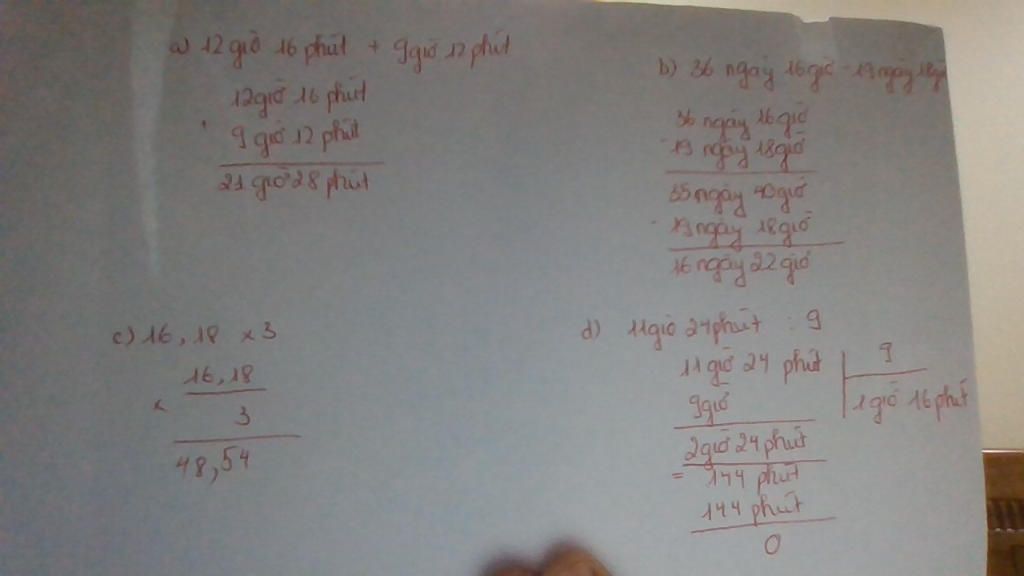 a) 12 giờ 16 phút + 9 giờ 12 phút
12 giờ 16 phút
9 giờ 12 phút
21 giờ 28 phút
b) 36 ngày 16 giờ - 19 ngày 18 giờ
36 ngày 16 giờ
- 19 ngày 18 giờ
35 ngày 40 giờ
- 19 ngày 18 giờ
16 ngày 22 giờ
c) 16,18 x 3
16,18
x
3
48,54
d) 11 giờ 24 phút : 9
11 giờ 24 phút
9
9 giờ
1 giờ 16 phút
2 giờ 24 phút
= 144 phút
144 phút
0